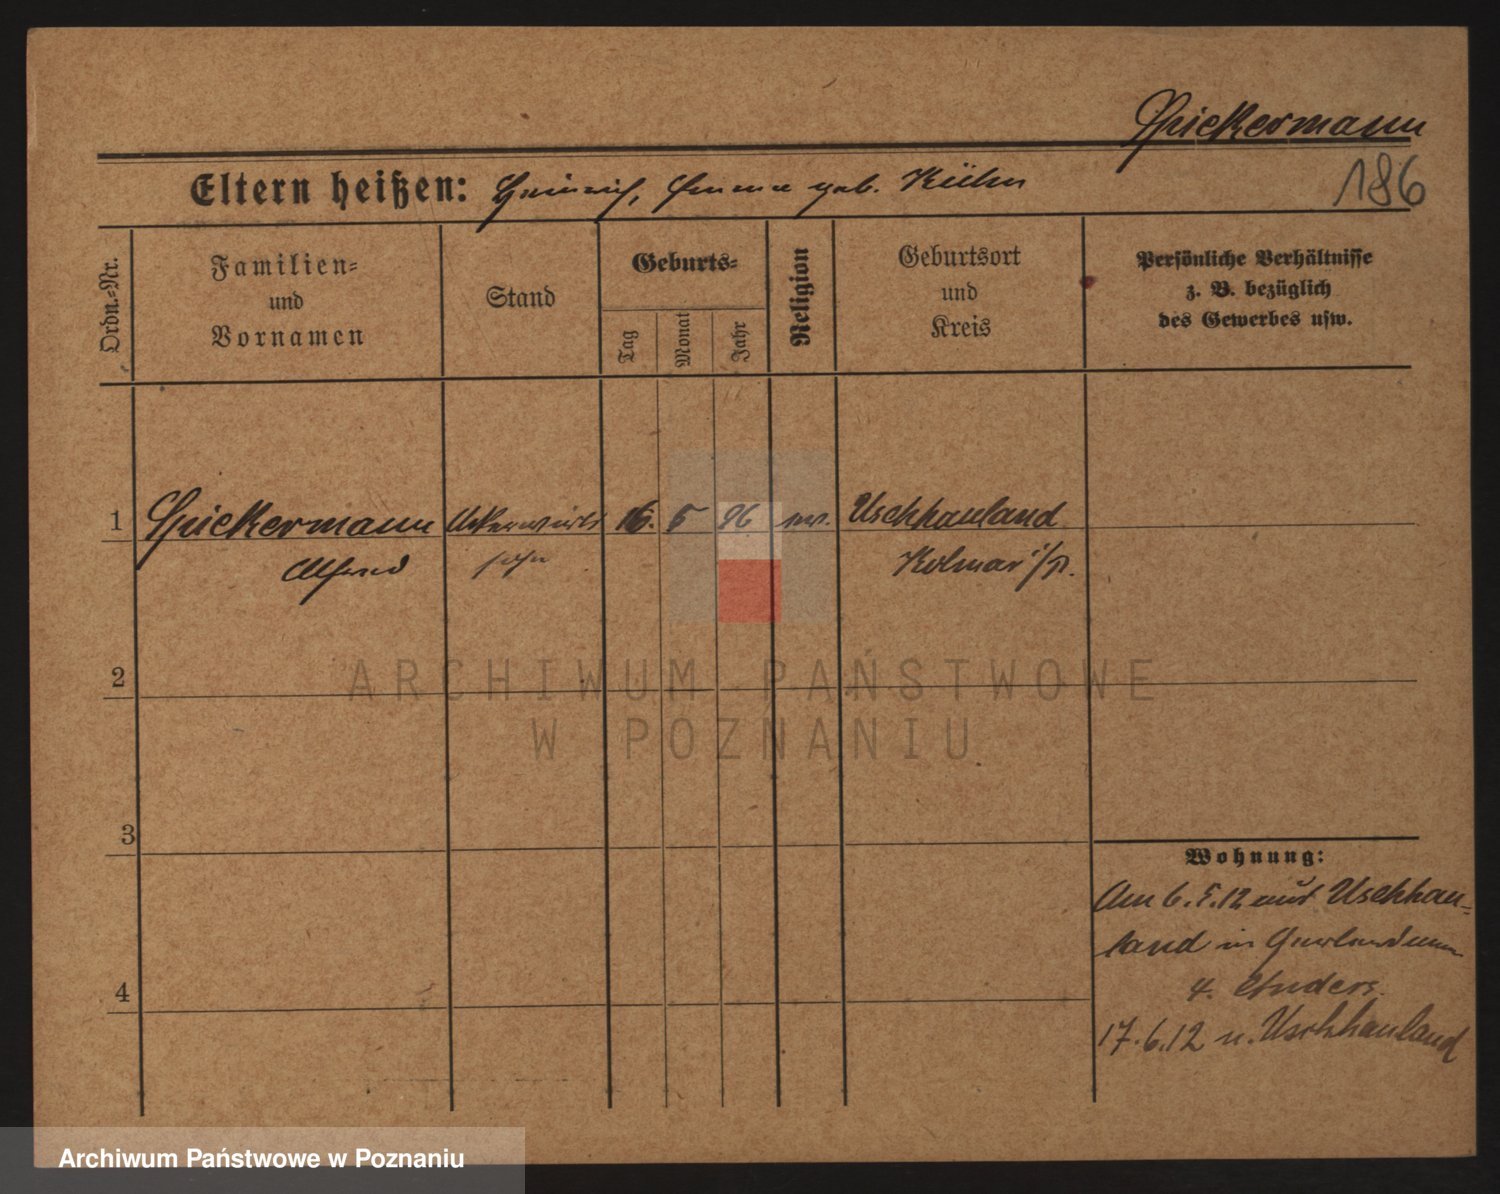 Spickermann
186
Eltern heißen: Heinrich, Emma geb. Kühn
Ordn.-Nr.
Familien-
und
Vornamen
Stand
Geburts-
Tag
Monat
Jahr
Religion
Geburtsort
und
Kreis
Persönliche Verhältnisse
z. B. bezüglich
des Gewerbes usw.
1 Spickermann Ackerwirts 16. 5 96 ev. Uschhauland
Alfred sohn Kolmar i/P.
2
3
4
Wohnung:
Am 6.5.12 aus Uschhau-
land in
4.
17.6.12 n. Uschhauland
ARCHIWUM PAŃSTWOWE
W POZNANIU
Archiwum Państwowe w Poznaniu